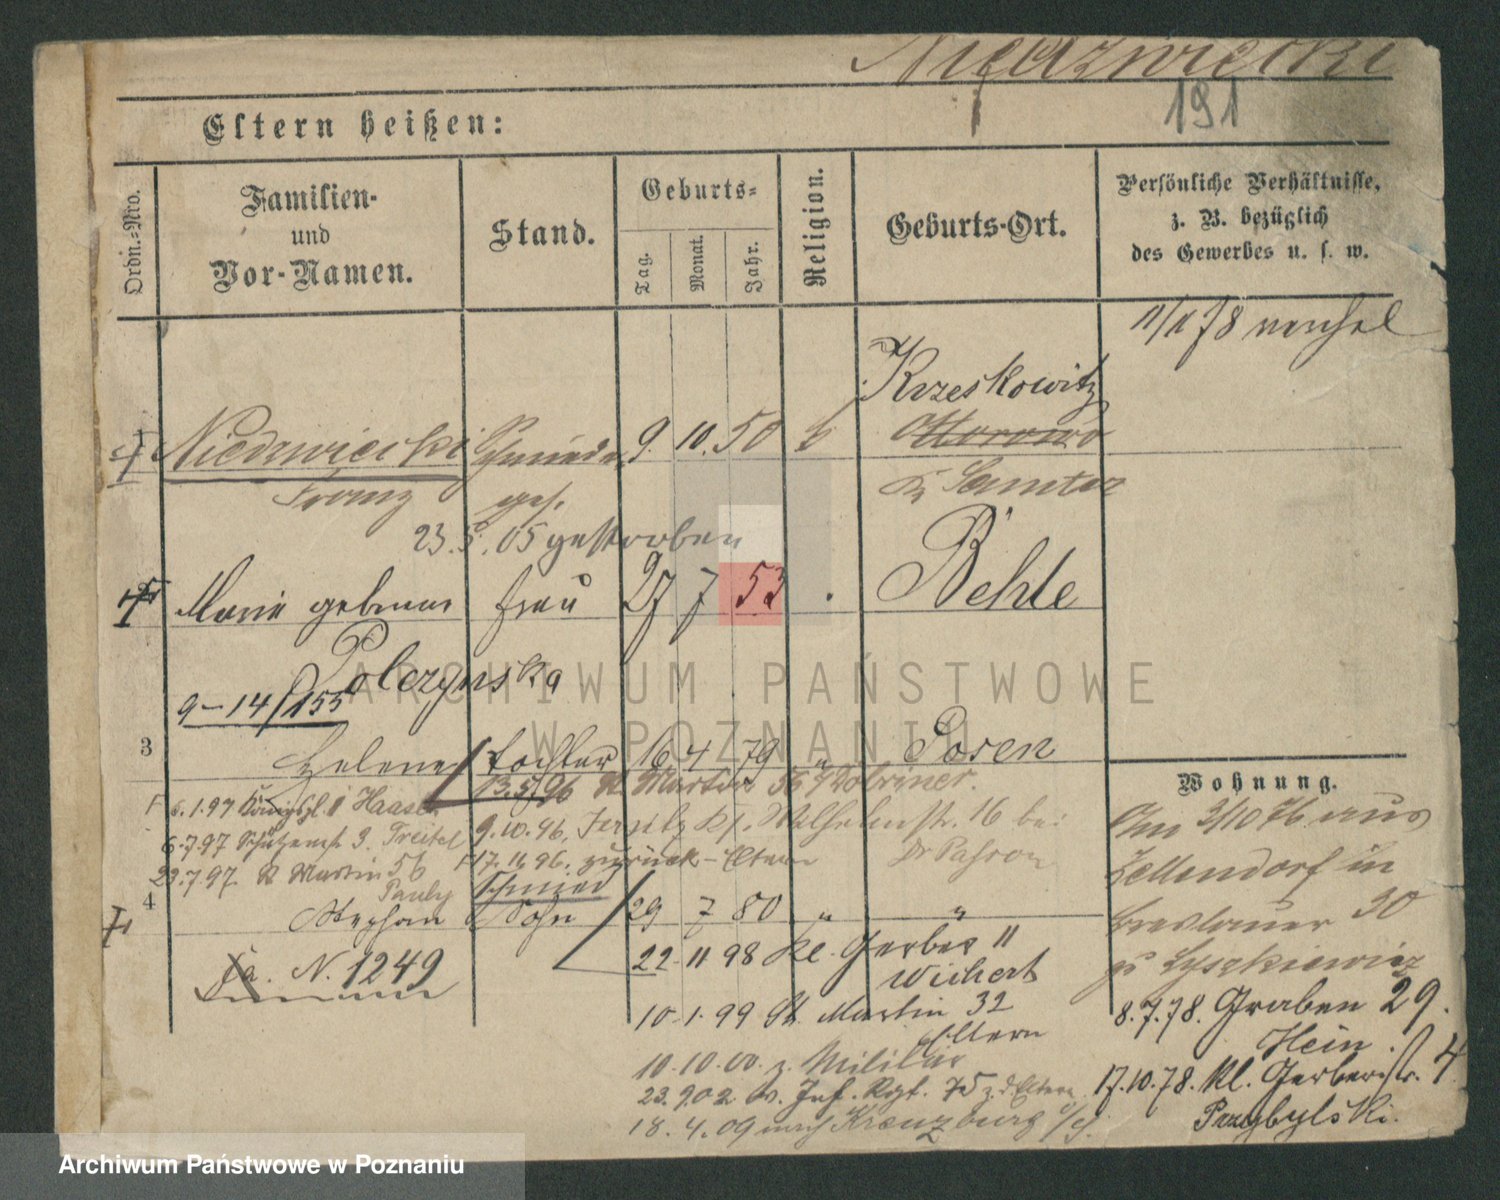 Niedzwiecki
191
Eltern heißen:
Ordn.-Nro.
Familien-
und
Vor-Namen.
Stand.
Geburts-
Tag.
Monat.
Jahr.
Religion.
Geburts-Ort.
Persönliche Verhältnisse,
z. B. bezüglich
des Gewerbes u. s. w.
Krzeskowitz
Niedzwiecki 9. 10. 50 Ottorowo
Franz ges. Samter
23. 5. 05 gestorben
Marie geborene Frau 27 7 53 Behle
Polczynska
9-14/155
3 Helene Tochter 16 4 79 " Posen
13.5.96 St Martin 56
6.1.97 Haase
9.10.96. Wilhelmstr. 16 bei
6.7.97 Schützenstr 3. Treitel
17.11.96. zurück - Eltern
23.7.97. St Martin 56
Pauly
Schmied
4 Stephan Sohn 29 7 80 " "
22 11 98 kl. Gerber 11
Wichert
N. 1249
10. 1. 99 St. Martin 32
Eltern
10.10.00. z. Militär
23.9.02 v. Inf. Rgt. z. d. Eltern
18. 4. 09 nach Kreuzburg
Wohnung.
Am 3/10 76 aus
Zellendorf in
Breslauer 30
8.7.78. Graben 29.
Hein.
17.10.78. kl. Gerberstr. 4
Przybylski.
ARCHIWUM PAŃSTWOWE
W POZNANIU
Archiwum Państwowe w Poznaniu